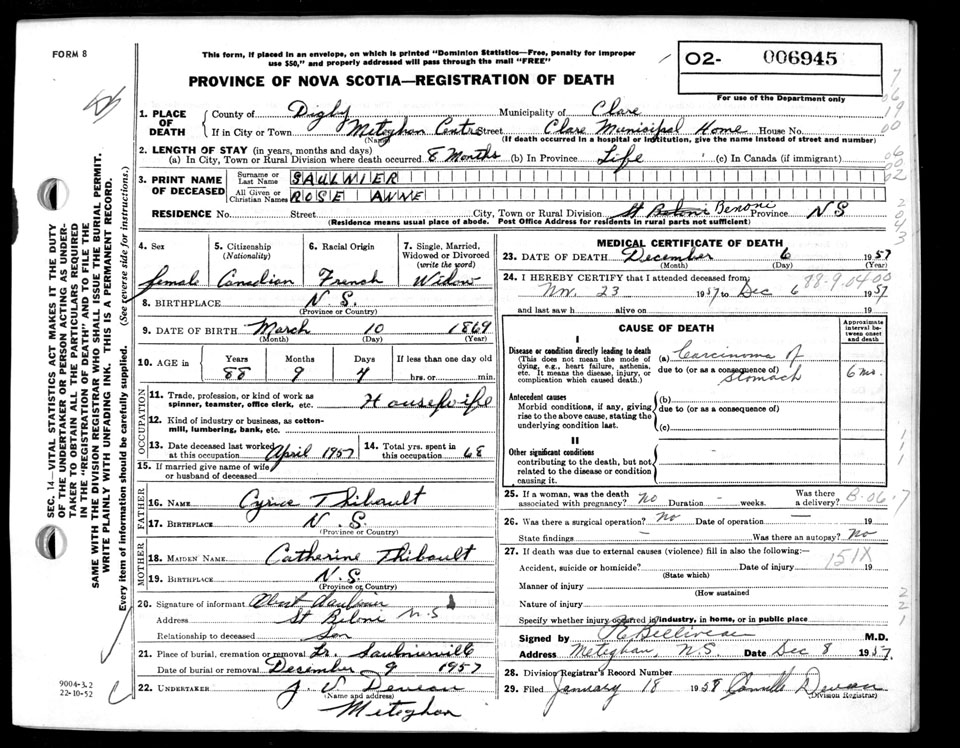 FORM 8
This form, if placed in an envelope, on which is printed "Dominion Statistics—Free, penalty for improper
use $50," and properly addressed will pass through the mail "FREE"
PROVINCE OF NOVA SCOTIA—REGISTRATION OF DEATH
O2- 006945
For use of the Department only
SEC. 14—VITAL STATISTICS ACT MAKES IT THE DUTY
OF THE UNDERTAKER OR PERSON ACTING AS UNDER-
TAKER TO OBTAIN ALL THE PARTICULARS REQUIRED
IN THE "REGISTRATION OF DEATH" AND TO FILE THE
SAME WITH THE DIVISION REGISTRAR WHO SHALL ISSUE THE BURIAL PERMIT.
WRITE PLAINLY WITH UNFADING INK. THIS IS A PERMANENT RECORD.
Every item of information should be carefully supplied. (See reverse side for instructions.)
1. PLACE OF DEATH
County of Digby Municipality of Clare
If in City or Town Meteghan Centre Street Clare Municipal Home House No.
(Name) (If death occurred in a hospital or institution, give the name instead of street and number)
2. LENGTH OF STAY (in years, months and days)
(a) In City, Town or Rural Division where death occurred 8 Months (b) In Province Life (c) In Canada (if immigrant)
3. PRINT NAME OF DECEASED
Surname or Last Name SAULNIER
All Given or Christian Names ROSE ANNE
RESIDENCE No. Street City, Town or Rural Division St Benoni Province NS
(Residence means usual place of abode. Post Office Address for residents in rural parts not sufficient)
4. Sex female
5. Citizenship (Nationality) Canadian
6. Racial Origin French
7. Single, Married, Widowed or Divorced (write the word) Widow
8. BIRTHPLACE N.S.
(Province or Country)
9. DATE OF BIRTH March 10 1869
(Month) (Day) (Year)
10. AGE in Years Months Days If less than one day old
88 9 4 hrs. or min.
OCCUPATION
11. Trade, profession, or kind of work as spinner, teamster, office clerk, etc. Housewife
12. Kind of industry or business, as cotton-mill, lumbering, bank, etc.
13. Date deceased last worked at this occupation April 1957
14. Total yrs. spent in this occupation 68
15. If married give name of wife or husband of deceased
FATHER
16. NAME Thibault
17. BIRTHPLACE N.S.
MOTHER
18. MAIDEN NAME Catherine Thibault
19. BIRTHPLACE N.S.
(Province or Country)
20. Signature of informant Saulnier
Address St N-S
Relationship to deceased Son
21. Place of burial, cremation or removal Saulnierville
Date of burial or removal December 9 1957
22. UNDERTAKER J V Deveau
(Name and address)
Meteghan
9004-3.2
22-10-52
MEDICAL CERTIFICATE OF DEATH
23. DATE OF DEATH December 6 1957
(Month) (Day) (Year)
24. I HEREBY CERTIFY that I attended deceased from
Nov. 23 1957 to Dec 6 1957
88-9.0400
and last saw h alive on 19
CAUSE OF DEATH
Approximate interval between onset and death
I
Disease or condition directly leading to death
(This does not mean the mode of dying, e.g., heart failure, asthenia, etc. It means the disease, injury, or complication which caused death.)
(a) Carcinoma of
due to (or as a consequence of) stomach 6 mo.
Antecedent causes
Morbid conditions, if any, giving rise to the above cause, stating the underlying condition last.
(b)
due to (or as a consequence of)
(c)
II
Other significant conditions
contributing to the death, but not related to the disease or condition causing it.
25. If a woman, was the death associated with pregnancy? No Duration – weeks. Was there a delivery?
26. Was there a surgical operation? No Date of operation — 19
State findings – Was there an autopsy? No
27. If death was due to external causes (violence) fill in also the following:—
Accident, suicide or homicide? Date of injury 19
151X
(State which)
Manner of injury
(How sustained
Nature of injury
Specify whether injury occurred in industry, in home, or in public place
Signed by Belliveau M.D.
Address Meteghan, NS Date Dec 8 1957
28. Division Registrar's Record Number
29. Filed January 18 1958 Deveau
(Division Registrar)